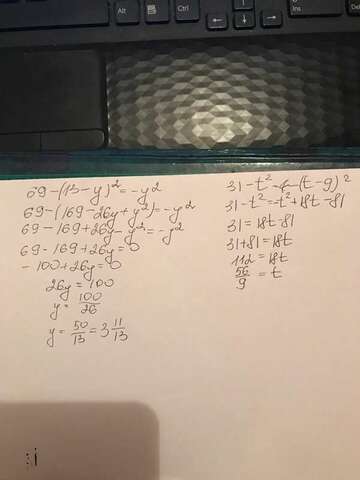 Alt
Ctrl
Ins
69-(13-y)²=-y²
69-(169-26y+y²)=-y²
69-169+26y-y²=-y²
69-169+26y=0
-100+26y=0
26y=100
y=100/26
y=50/13=3 11/13
31-t²=-(t-9)²
31-t²=-t²+18t-81
31=18t-81
31+81=18t
112=18t
56/9=t